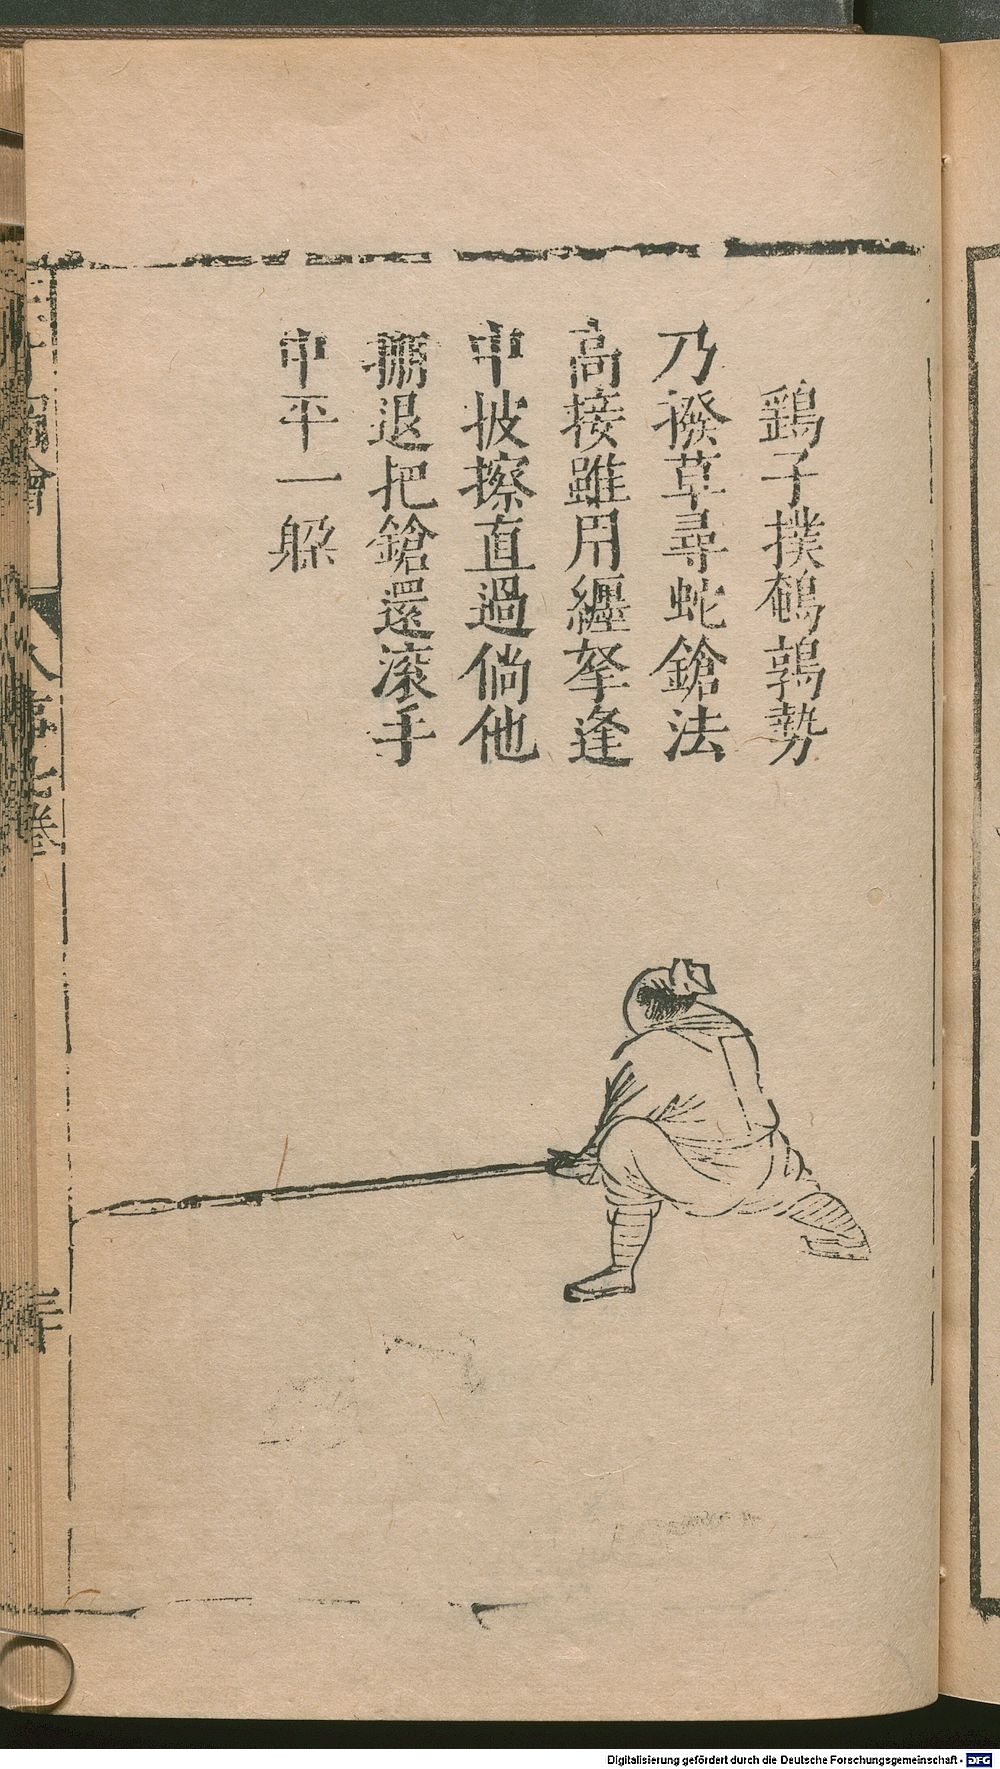 鷂子撲鵪鶉勢
乃撥草尋蛇鎗法
高接雖用纏拏逢
中披擦直過倘他
掤退把鎗還滚手
中平一跺
人事七卷
Digitalisierung gefördert durch die Deutsche Forschungsgemeinschaft - DFG